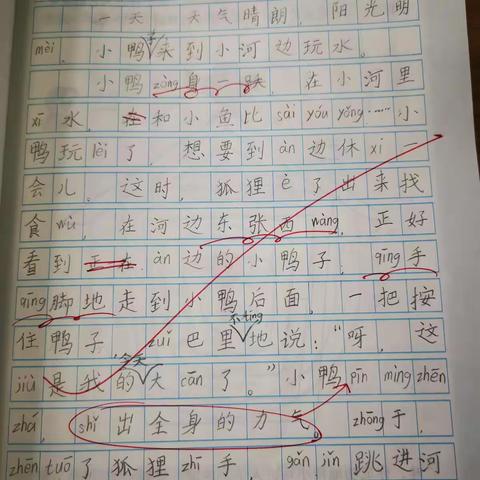 一天，天气晴朗，阳光明
mèi，小鸭来到小河边玩水。
小鸭zòng身一跃，在小河里
xī水，在和小鱼比sài yóu yǒng……小
鸭玩lèi了，想要到àn边休xi一
会儿。这时，狐狸è了出来找
食wù，在河边东张西wàng，正好
看到正在àn边的小鸭子，qīng手
qīng脚地走到小鸭后面，一把按
不tíng
住鸭子，zuǐ巴里地说：“呀，这
今天
jiù是我的大cān了。”小鸭pīn mìng zhēn
zhá，shǐ出全身的力气。zhōng于，
zhēn tuō了狐狸zhī手，gǎn jǐn跳进河